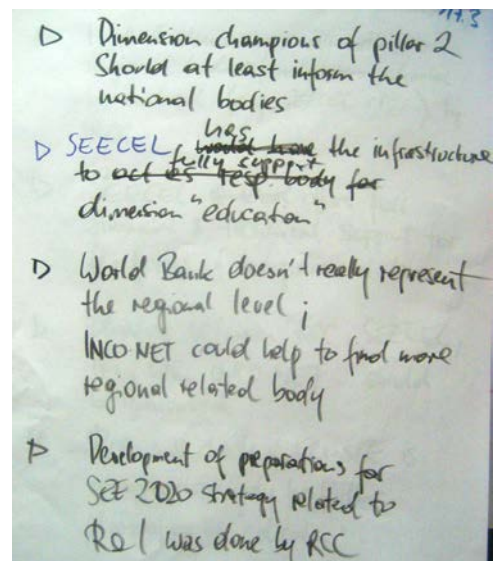 17.3
▷ Dimension champions of pillar 2
Should at least inform the
national bodies
▷ SEECEL has would have the infrastructure
fully support
to act as resp. body for
dimension "education"
▷ World Bank doesn't really represent
the regional level;
INCO-NET could help to find more
regional related body
▷ Development of preparations for
SEE 2020 strategy related to
R&I was done by RCC